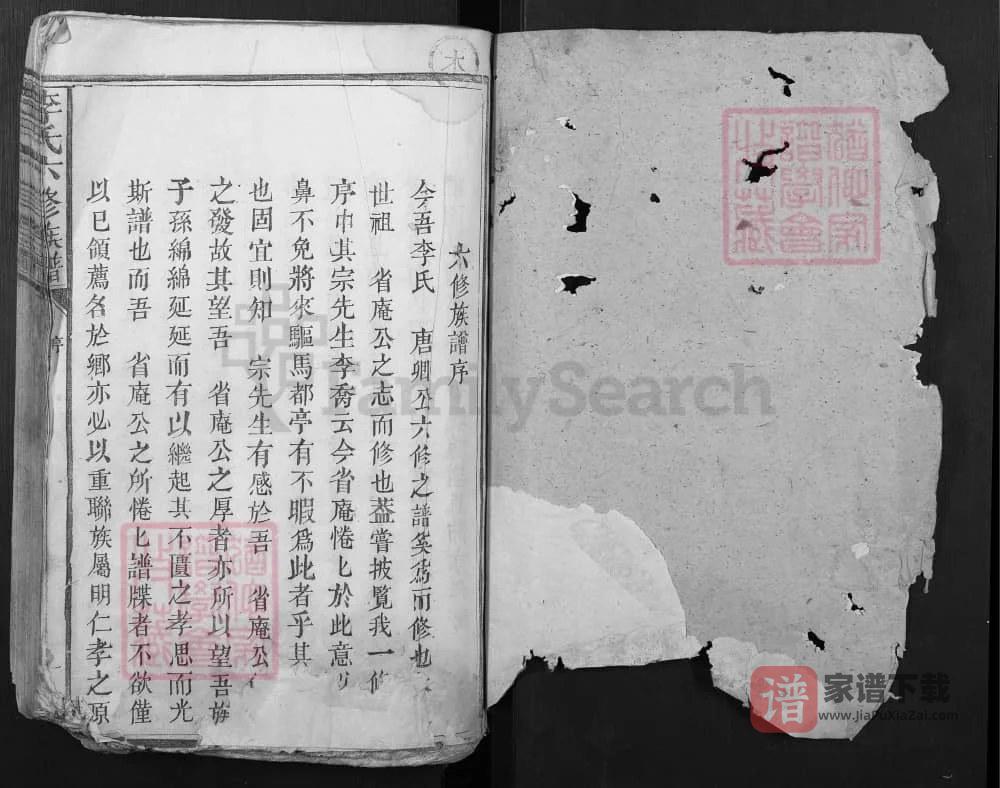 六修族譜序
今吾李氏 唐卿公六修之譜奚爲而修也
世祖 省庵公之志而修也葢嘗披覽我一修
序中其宗先生李喬云今省庵惓匕於此意
鼻不免將來驅馬都亭有不暇爲此者乎其
也固宜則知 宗先生有感於吾 省庵公
之發故其望吾 省庵公之厚者亦所以望吾族
子孫綿綿延延而有以繼起其不匱之孝思而光
斯譜也而吾 省庵公之所惓匕譜牒者不欲僅
以已領薦名於鄉亦必以重聯族屬明仁孝之原
李氏六修族譜
序
木
FamilySearch
譜
家谱下载
www.JiaPuXiaZai.com